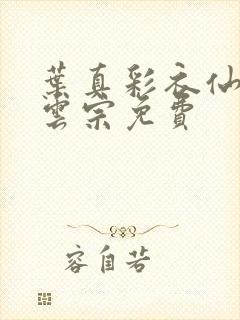 葉真彩衣仙
雲宗免費
容自若